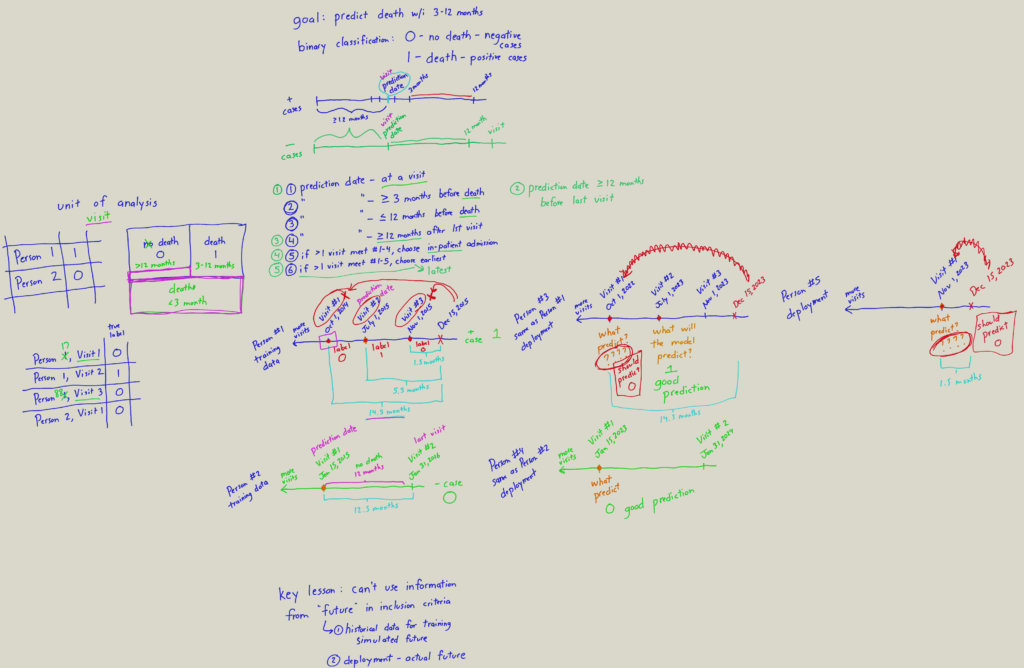 goal: predict death w/i 3-12 months
binary classification: 0 - no death - negative
cases
1 - death - positive cases
visit
prediction
date
3 months
12 months
+
cases
≥12 months
visit
prediction
date
12 month
visit
-
cases
① ① prediction date - at a visit
② " " - ≥ 3 months before death
③ " " - ≤ 12 months before death
③ ④ " " - ≥12 months after 1st visit
④ ⑤ if >1 visit meet #1-4, choose in-patient admission
⑤ ⑥ if >1 visit meet #1-5, choose earliest
latest
② prediction date ≥ 12 months
before last visit
unit of analysis
visit
Person 1 1
Person 2 0
death
0
>12 months
death
1
3-12 months
deaths
<3 month
true
label
Person 17, Visit 1 0
Person 1, Visit 2 1
Person, Visit 3 0
Person 2, Visit 1 0
Person #1
training
data
more
visits
Visit #1
Oct 1, 2014
prediction
date
Visit #2
July 1, 2015
Visit #3
Nov 1, 2015
Dec 15, 2015
+
case 1
label
0
label
1
label
0
1.5 months
5.5 months
14.5 months
Person #2
training data
more
visits
prediction date
Visit #1
Jan 15, 2015
no death
12 months
last visit
Visit #2
Jan 31, 2016
- case
0
12.5 months
Person #3
same as Person #1
deployment
more
visits
Visit #1
Oct 1, 2022
Visit #2
July 1, 2023
Visit #3
Nov 1, 2023
Dec 15, 2023
what
predict?
????
should
predict
0
what will
the model
predict?
1
good
prediction
14.5 months
Person #4
same as Person #2
deployment
more
visits
Visit #1
Jan 15, 2023
Visit #2
Jan 31, 2024
what
predict?
0 good prediction
Person #5
deployment
more
visits
Visit #1
Nov 1, 2023
Dec 15, 2023
what
predict?
????
should
predict
0
1.5 months
key lesson: can't use information
from "future" in inclusion criteria
① historical data for training
simulated future
② deployment - actual future